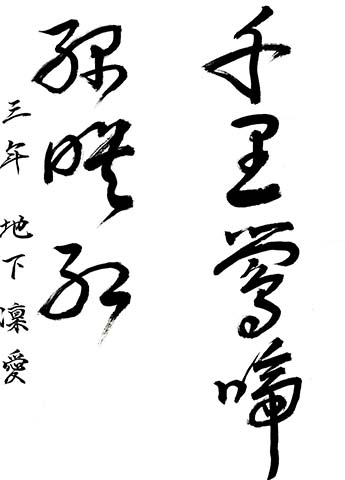 千里鶯啼
緑映紅
三年 地下 凜愛